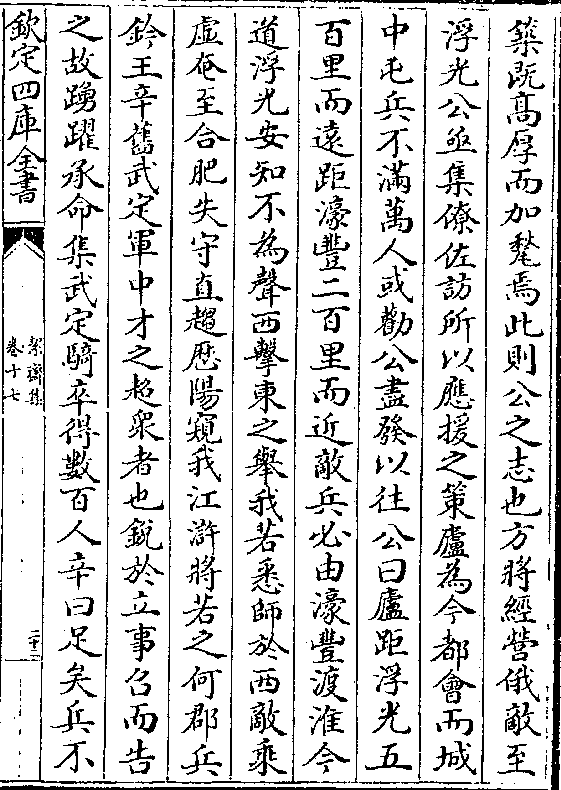 築既髙厚而加甃焉此則公之志也方將經營俄敵至
浮光公亟集僚佐訪所以應援之策廬為今都會而城
中屯兵不滿萬人或勸公盡發以往公曰廬距浮光五
百里而逺距濠豐二百里而近敵兵必由濠豐渡淮今
道浮光安知不為聲西擊東之舉我若悉師於西敵乘
虚奄至合肥失守直趨厯陽窺我江滸將若之何郡兵
鈐王辛舊武定軍中才之超衆者也鋭於立事召而告
之故踴躍承命集武定騎卒得數百人辛曰足矣兵不
欽定四庫全書
絜齋集
卷十七
二十二